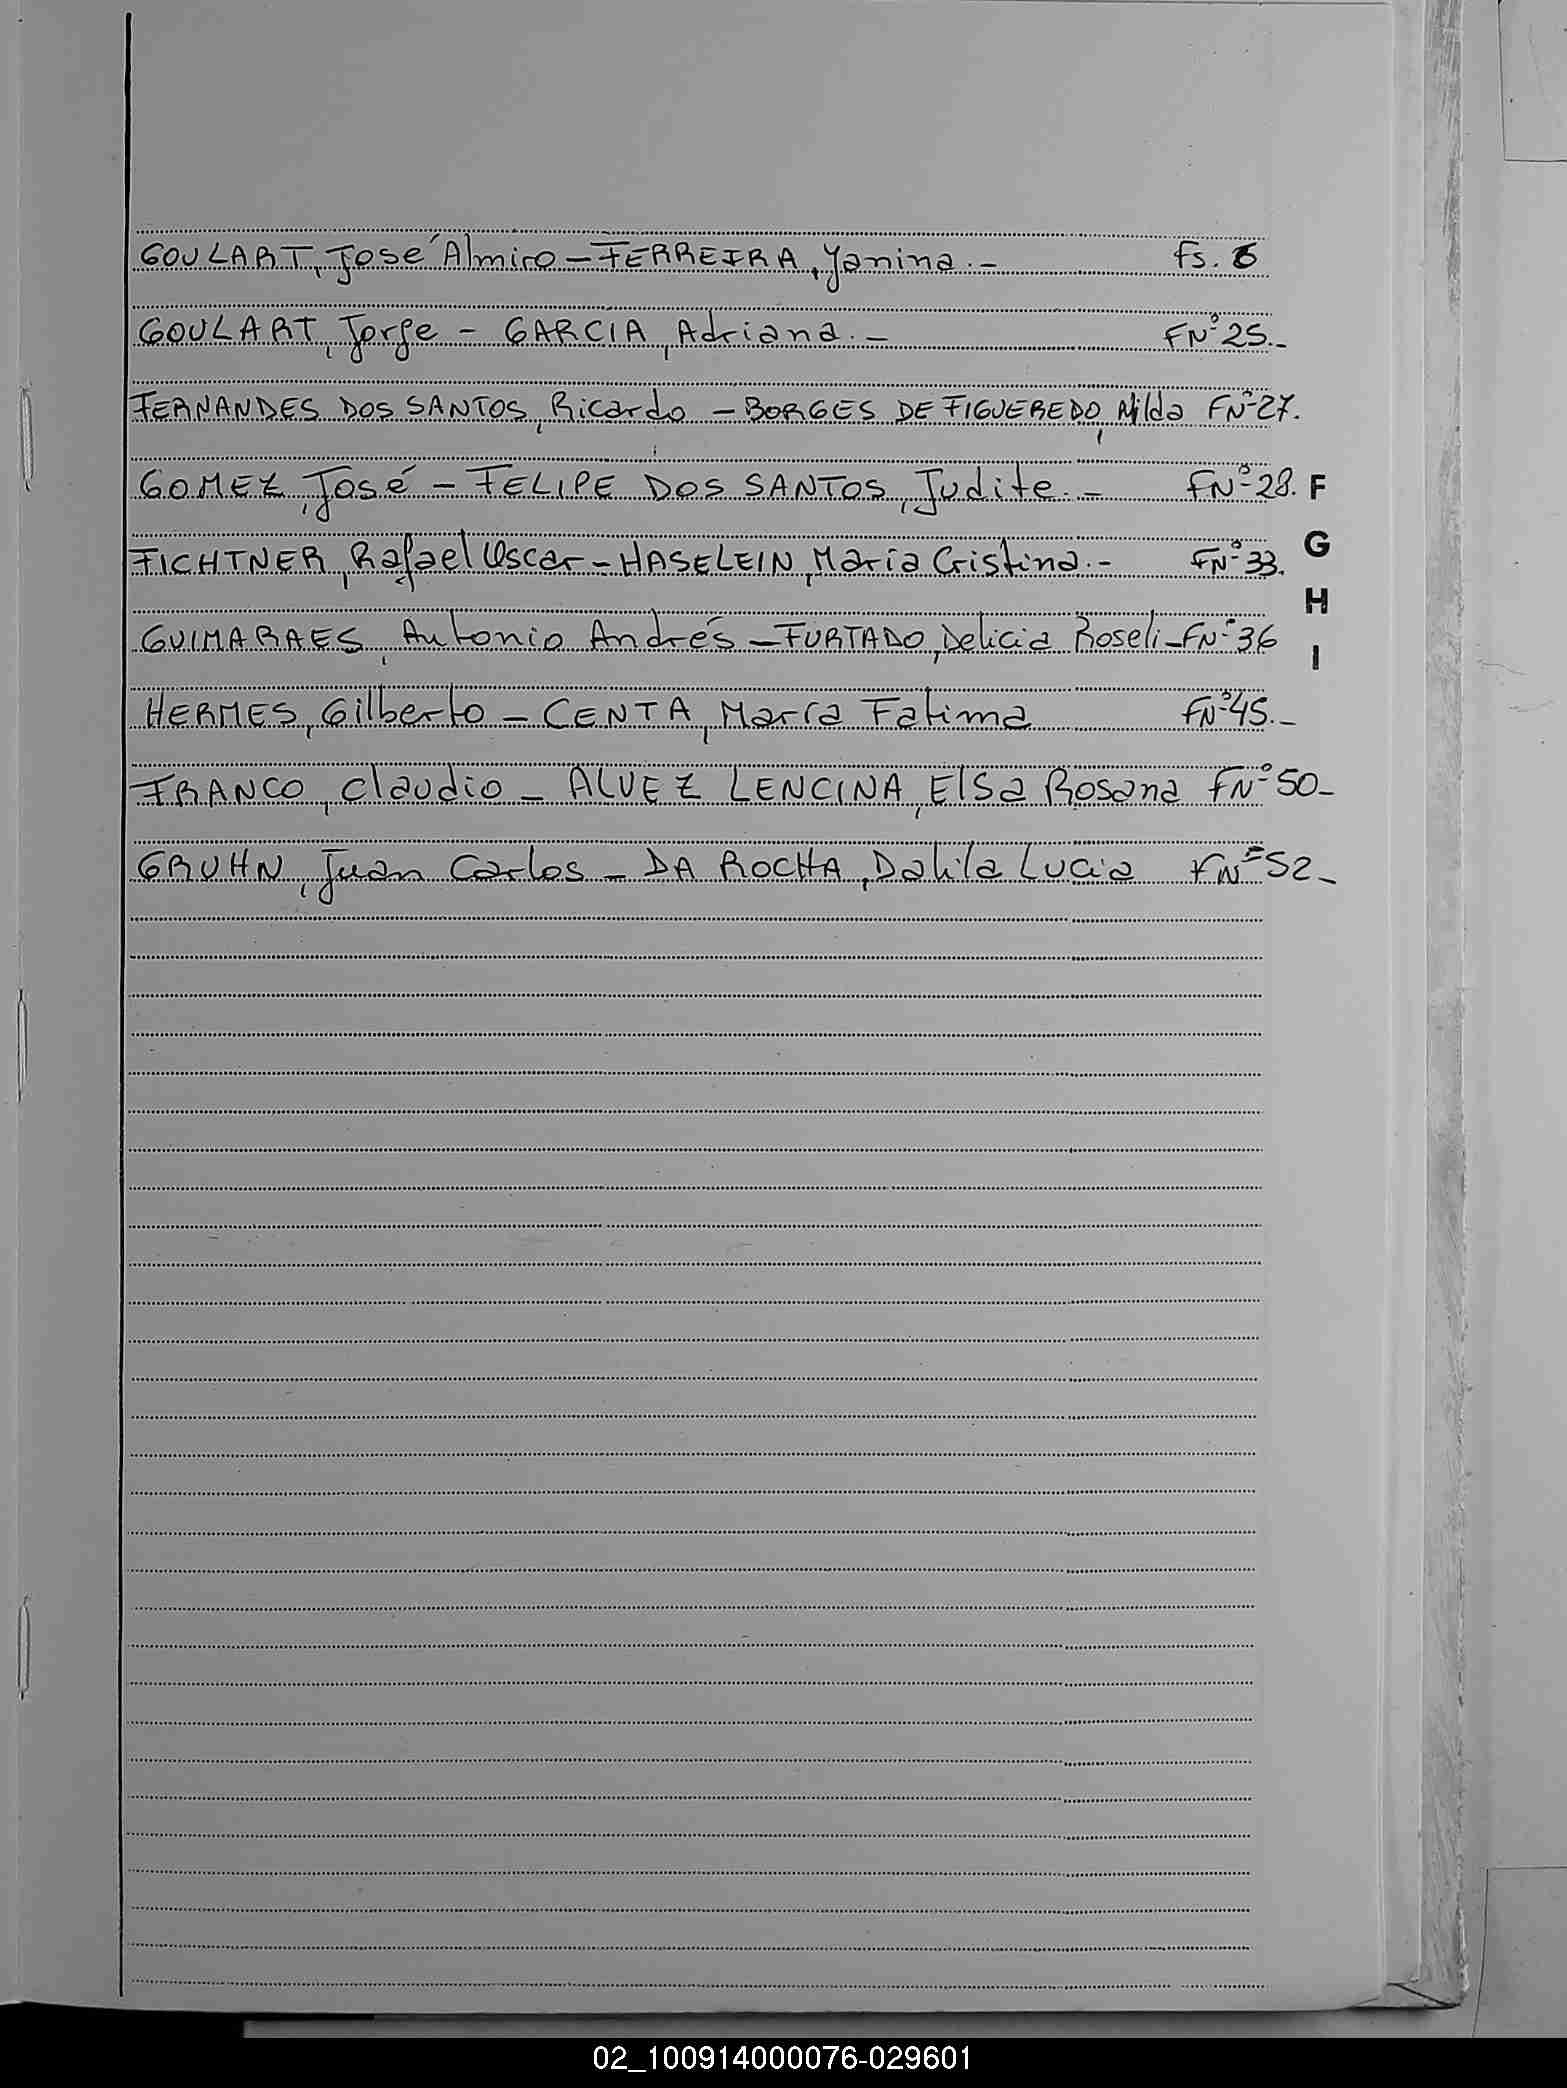 GOULART, José Almiro - FERREIRA, Yanina.- Fs. 6
GOULART, Jorge - GARCIA, Adriana.- FNº 25.-
FERNANDES DOS SANTOS, Ricardo - BORGES DE FIGUEREDO, Nilda FNº 27.
GOMEZ, José - FELIPE DOS SANTOS, Judite.- FNº 28.
FICHTNER, Rafael Oscar - HASELEIN, María Cristina.- FNº 33.
GUIMARAES, Antonio Andrés - FURTADO, Delicia Roseli - FNº 36
HERMES, Gilberto - CENTA, María Fatima FNº 45.-
FRANCO, Claudio - ALVEZ LENCINA, Elsa Rosana FNº 50-
GRUHN, Juan Carlos - DA ROCHA, Dalila Lucia FNº 52-
F
G
H
I
02_100914000076-029601